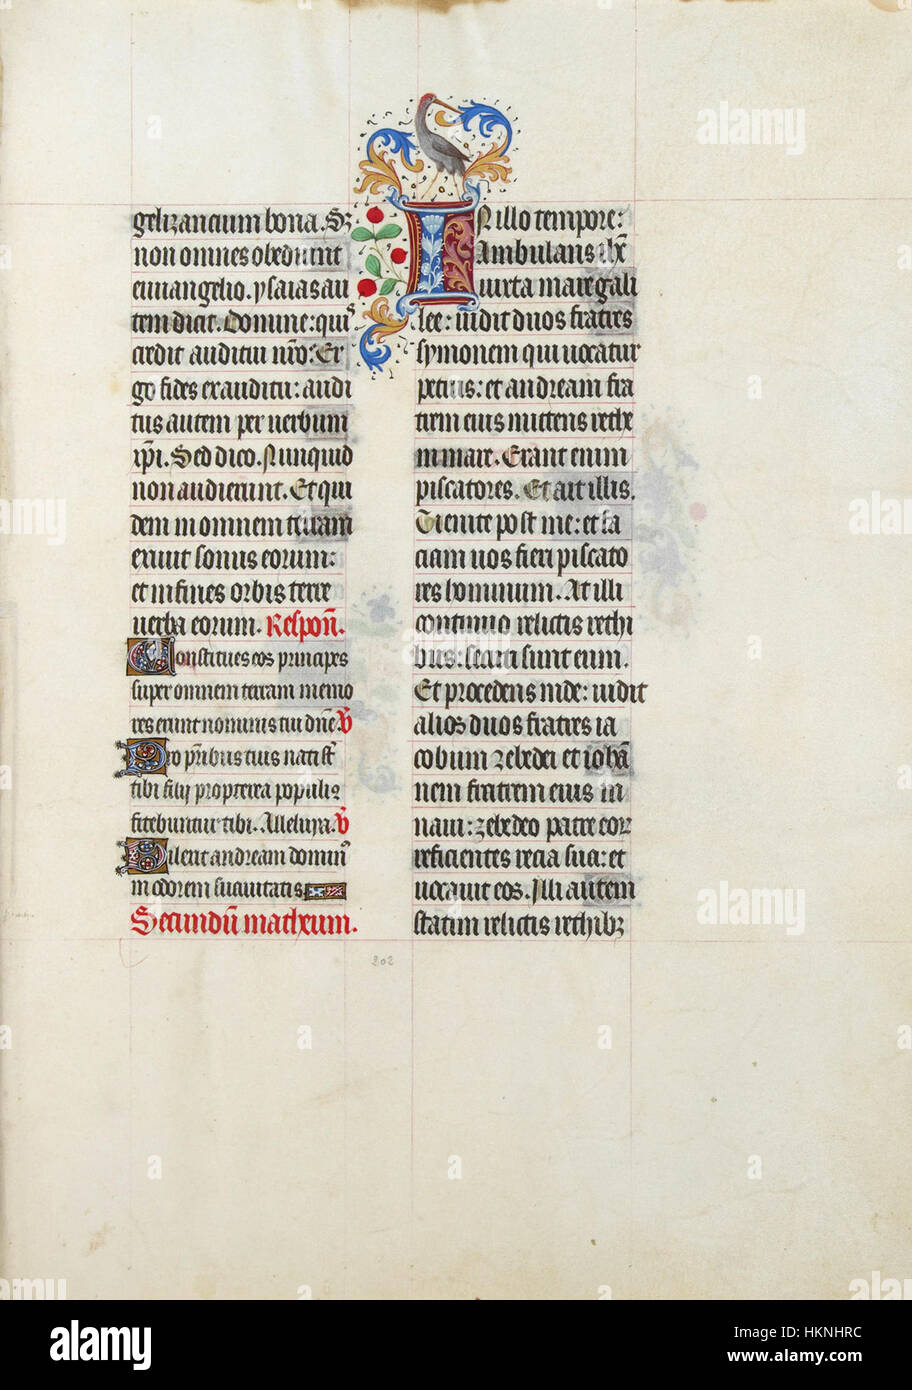 gelizancium bona. Sz
non omnes obediunt
euuangelio. ysaias au
tem dicit. Domine: quis
credit auditui nr̄o: Er
go fides ex auditu: audi
tus autem per uerbum
xp̄i. Sed dico. Nunquid
non audierunt. Et qui
dem in omnem terram
exiuit sonus eorum:
et in fines orbis terre
uerba eorum. Respon̄.
Constitues eos principes
super omnem terram memo
res erunt nominis tui dn̄e. V̄
Pro pr̄ibus tuis nati st̄
tibi filij propterea populi
fitebuntur tibi. Alleluya. V̄
Dilexit andream domin̄
in odorem suauitatis
Secundū matheum.
IN illo tempore:
Ambulans ihē
iuxta mare gali
lee: uidit duos fratres
symonem qui uocatur
petrus: et andream fra
trem eius mittens rethe
in mare. Erant enim
piscatores. Et ait illis.
Uenite post me: et fa
ciam uos fieri piscato
res hominum. At illi
continuo relictis rethi
bus: secuti sunt eum.
Et procedens inde: uidit
alios duos fratres ia
cobum zebedei et iohān
nem fratrem eius in
naui: zebedeo patre eoꝝ
reficientes recia sua: et
uocauit eos. Illi autem
statim relictis rethibꝫ
202
alamy
alamy
Image ID: HKNHRC
www.alamy.com